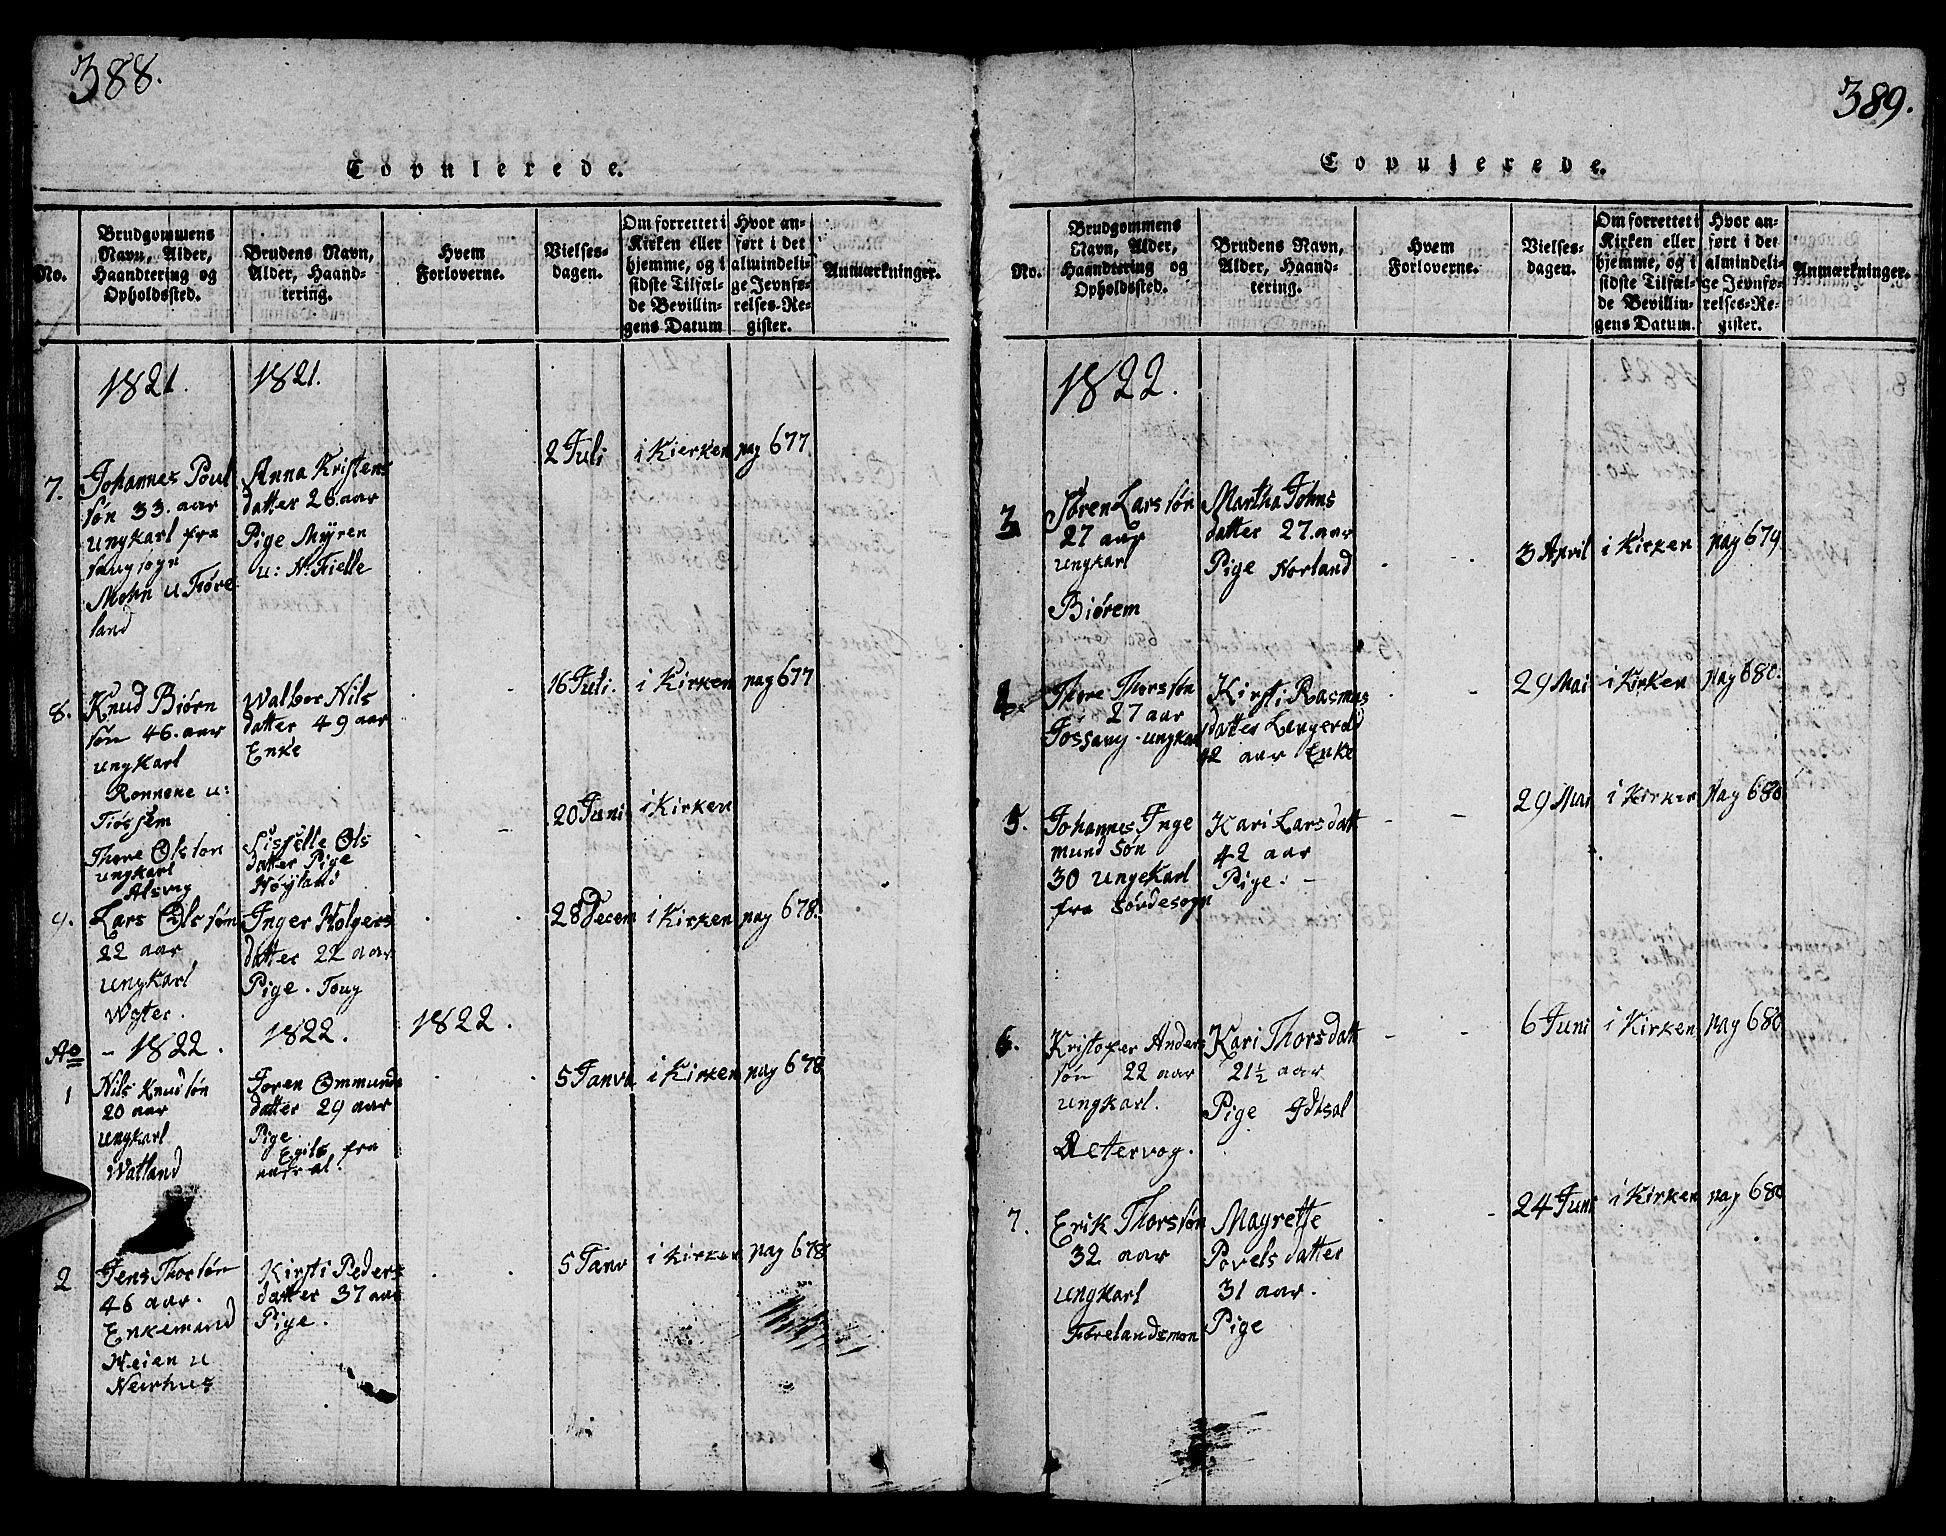 388.
Copulerede.
No.
Brudgommens
Navn, Alder,
Haandtering og
Opholdssted.
Brudens Navn,
Alder, Haand-
tering.
Hvem
Forloverne.
Vielses-
dagen.
Om forrettet i
Kirken eller
hjemme, og i
sidste Tilfæl-
de Bevillin-
gens Datum
Hvor an-
ført i det
almindeli-
ge Jevnfø-
relses-Re-
gister.
Anmærkninger.
1821.
1821.
7.
Johannes Poul
søn 33. aar
ungkarl fra
Mohn u Føre
land
Anna Kristens
datter 26 aar
Pige Myren
u: N. Fielle
2 Juli
i Kierken
pag 677
8.
Knud Biørn
søn 46. aar
ungkarl
Ronnene u:
Tiøssem
Walbor Nils
datter 49 aar
Enke
16 Juli.
i Kirken
pag 677
Thore Olsson
ungkarl
Alsvig
Sisselle Ols
datter Pige
Høyland
20 Juni
i Kirken
9.
Lars Olssøn
22 aar
ungkarl
Wogter.
Inger Holgers
datter 22 aar
Pige. Toug
28 Decem
i Kirken
pag 678.
Ao
- 1822.
1822.
1822.
1
Nils Knudsøn
20 aar
ungkarl
Watland
Joren Ommunds
datter 29 aar
Pige
fra
5 Janva
i Kirken
pag 678
2
Jens Thorsøn
46 aar.
Enkemand
Heien u
Neirhus
Kirsti Peders
datter 37 aar
Pige.
5 Janv
i Kirken
pag 678
389.
Copulerede.
No.
Brudgommens
Navn, Alder,
Haandtering og
Opholdssted.
Brudens Navn,
Alder, Haand-
tering.
Hvem
Forloverne.
Vielses-
dagen.
Om forrettet i
Kirken eller
hjemme, og i
sidste Tilfæl-
de Bevillin-
gens Datum.
Hvor an-
ført i det
almindeli-
ge Jevnfø-
relses-Re-
gister.
Anmærkninger.
1822.
3
Søren Larssøn
27 aar
ungkarl
Biørem
Martha Johns
datter 27. aar
Pige Norland
3 April
i Kirken
pag 679
Thore Thorssøn
27 aar
Fossavg - ungkarl
Kirsti Rasmus
datter
42 aar Enke
29 Mai
i Kirken
pag 680.
5.
Johannes Inge
mund Søn
30 ungekarl
fra Sövdesogn
Kari Larsdatt
42 aar
Pige. -
29 Mai
i Kirken
pag 680
6.
Kristofer Anders
søn 22 aar
ungkarl.
Kari Thorsdatt
21½ aar
Pige Idtsal
6 Juni
i Kirken
pag 680
7.
Erik Thorssøn
32 aar
ungkarl
Førelandsmon
Magrette
Povelsdatter
31 aar.
Pige
24 Juni
i Kirken
pag 680